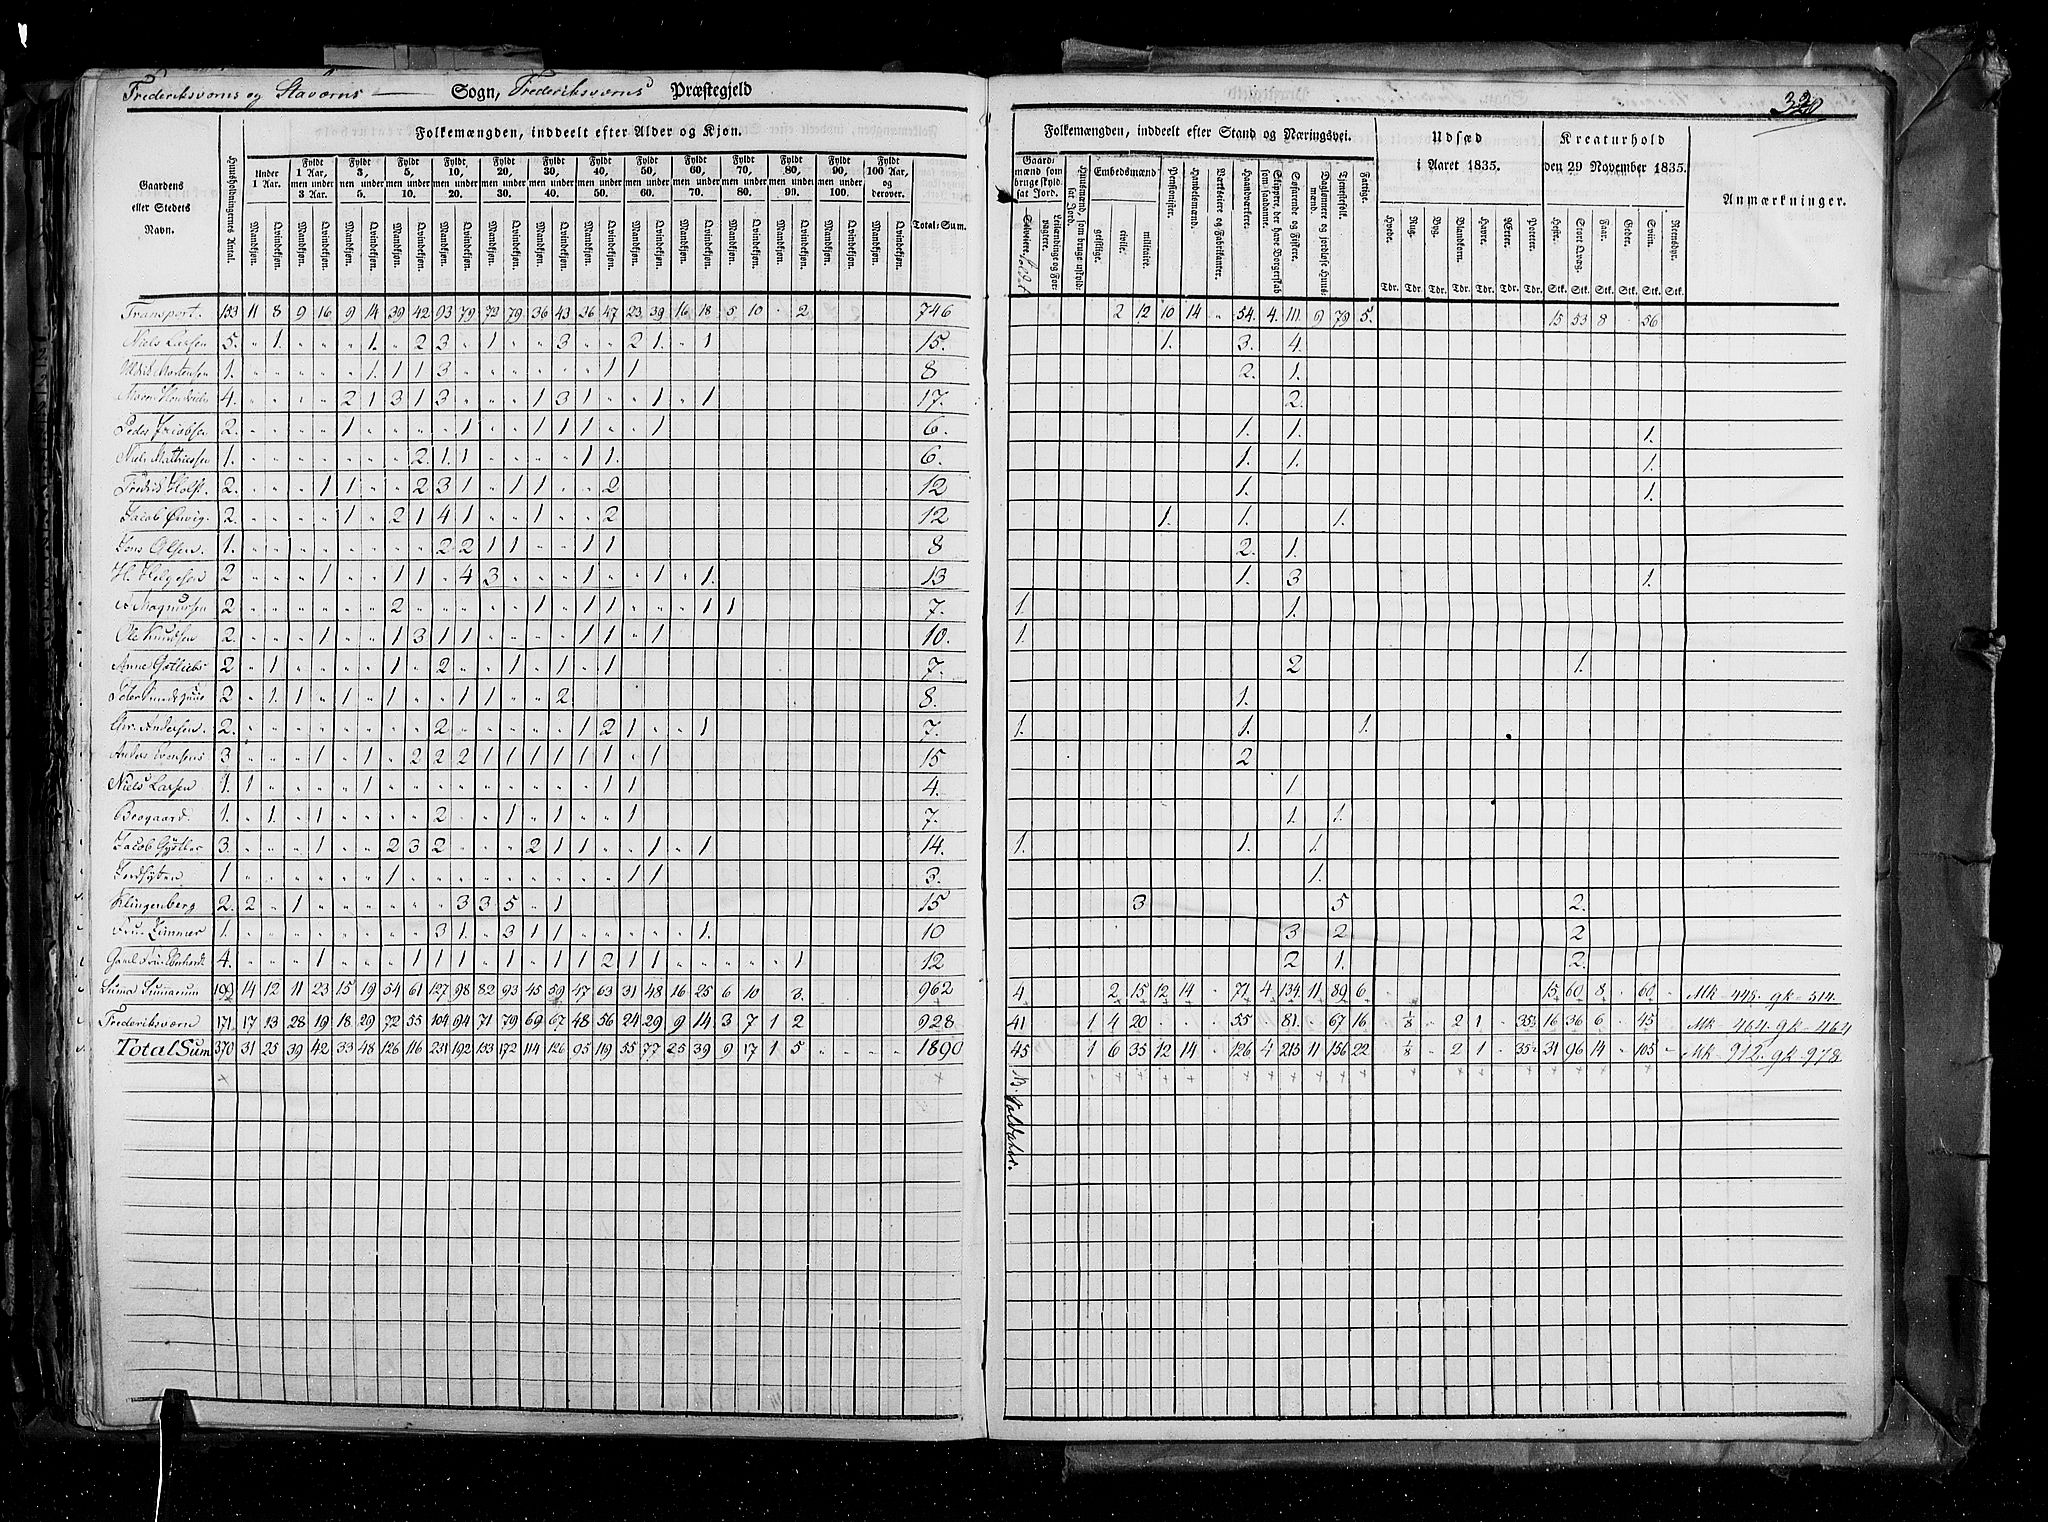 Frederiksværns og Staværns — Sogn, Frederiksværns Præstegjeld
Folkemængden, inddeelt efter Alder og Kjøn.
Gaardens eller Stedets Navn.
Huusholdningernes Antal.
Under 1 Aar. Fyldt 1 Aar, men under 3 Aar. Fyldt 3, men under 5. Fyldt 5, men under 10. Fyldt 10, men under 20. Fyldt 20, men under 30. Fyldt 30, men under 40. Fyldt 40, men under 50. Fyldt 50, men under 60. Fyldt 60, men under 70. Fyldt 70, men under 80. Fyldt 80, men under 90. Fyldt 90, men under 100. Fyldt 100 Aar, og derover.
Mandkjøn. Qvindekjøn. Total-Sum.
Transport. 133 11 8 9 16 9 14 39 42 93 79 73 79 36 43 36 47 23 39 16 18 5 10 . 2 746
Niels Larsen 5. 1. 1. 2 3 1 3 2 1. 1 15.
Mortensen 1. 1. 1 1 3 1 1 8
4. 2 1 3 1 3 1 3 1 1 1 17.
Peder Jacobsen 2. 1 1 1 1 1 1 6.
Niels Mathiessen 1. 2 1. 1 1 1. 6.
Fredrik Holst. 2. 1 1 2 3 1 1 1 2 12
Jacob Ørvig. 2. 1 2 1 4 1 1 2 12
Jens Olsen. 1. 2 2 1 1 1 1 8
H. Helgesen 2 1 1 1 4 3 1 1 1. 13
Magnussen 2 2 1 1 1 1 1 7.
Ole Knudsen 2. 1 1 3 1 1 1 1 1 10.
Anne Gotliebs 2 1 1 2 1 1 1 7.
Peter 2 1 1 1 1 1 1 2. 8.
Chr. Andersen. 2. 2 1 2 1 1 7.
Anders Svensens 3 1 1 2 2 2 1 1 1 1 1 1 1 15
Niels Larsen 1. 1 1 1 1 4.
Brogaard. 1. 1. 1 2 1 1 1 7.
Jacob Gydtler 3. 1 2 3 2 2 1 1 1 1 14.
Jordhytten 1 1 1 1 3.
Klingenberg 2. 2 1 3 3 5 1 15
Fru Zimmer 1. 3 1. 3 1 1 1. 10
4. 1 1 1 1 1 1 1 1 2 1 1 1 12
Suma Sumarum 199 14 12 11 23 15 19 54 61 127 98 82 93 45 59 47 63 31 48 16 25 6 10 3. 962
Frederiksværn 171 17 13 28 19 18 29 72 55 104 94 71 79 69 67 48 56 24 29 9 14 3 7 1 2 928
Total Sum 370 31 25 39 42 33 48 126 116 231 192 153 172 114 126 95 119 55 77 25 39 9 17 1 5 1890
Folkemængden, inddeelt efter Stand og Næringsvei.
Gaardmænd som bruge skyldsat Jord.
Selveiere.
Leilændinge og Forpagtere.
Huusmænd, som bruge uskyldsat Jord.
Embedsmænd
geistlige.
civile.
militaire.
Pensionister.
Handelsmænd.
Værkseiere og Fabrikanter.
Haandværkere.
Skippere, der have Borgerskab som saadanne.
Søfarende og Fiskere.
Dagleiere og jordløse Huusmænd.
Tjenestefolk.
Fattige.
Udsæd i Aaret 1835.
Hvede. Rug. Byg. Blandkorn. Havre. Erter. Poteter.
Tdr. Tdr. Tdr. Tdr. Tdr. Tdr. Tdr.
Kreaturhold den 29 November 1835.
Heste. Stort Qvæg. Faar. Geder. Sviin. Rensdyr.
Stk. Stk. Stk. Stk. Stk. Stk.
Anmærkninger.
2 12 10 14 54. 4. 111 9 79 5. 15 53 8 56
1. 3. 4.
2. 1.
2.
1. 1. 1.
1. 1. 1.
1. 1.
1. 1. 1.
2. 1.
1. 3 1.
1. 1.
1.
2 1.
1.
1. 1. 1.
2
1
1 1.
1. 1. 1.
1.
3 5 2.
3 2 2
2 1. 2.
4 2 15 12 14 71 4 134 11 89 6 15 60 8 60 Mk = 448. qk = 514.
41 1 4 20 55 81. 67 16 1/8 2 1 35½ 16 36 6 45 Mk = 464. qk = 464
45 1 6 35 12 14 126 4 215 11 156 22 1/8 2 1 35½ 31 96 14 105 Mk = 912. qk = 978